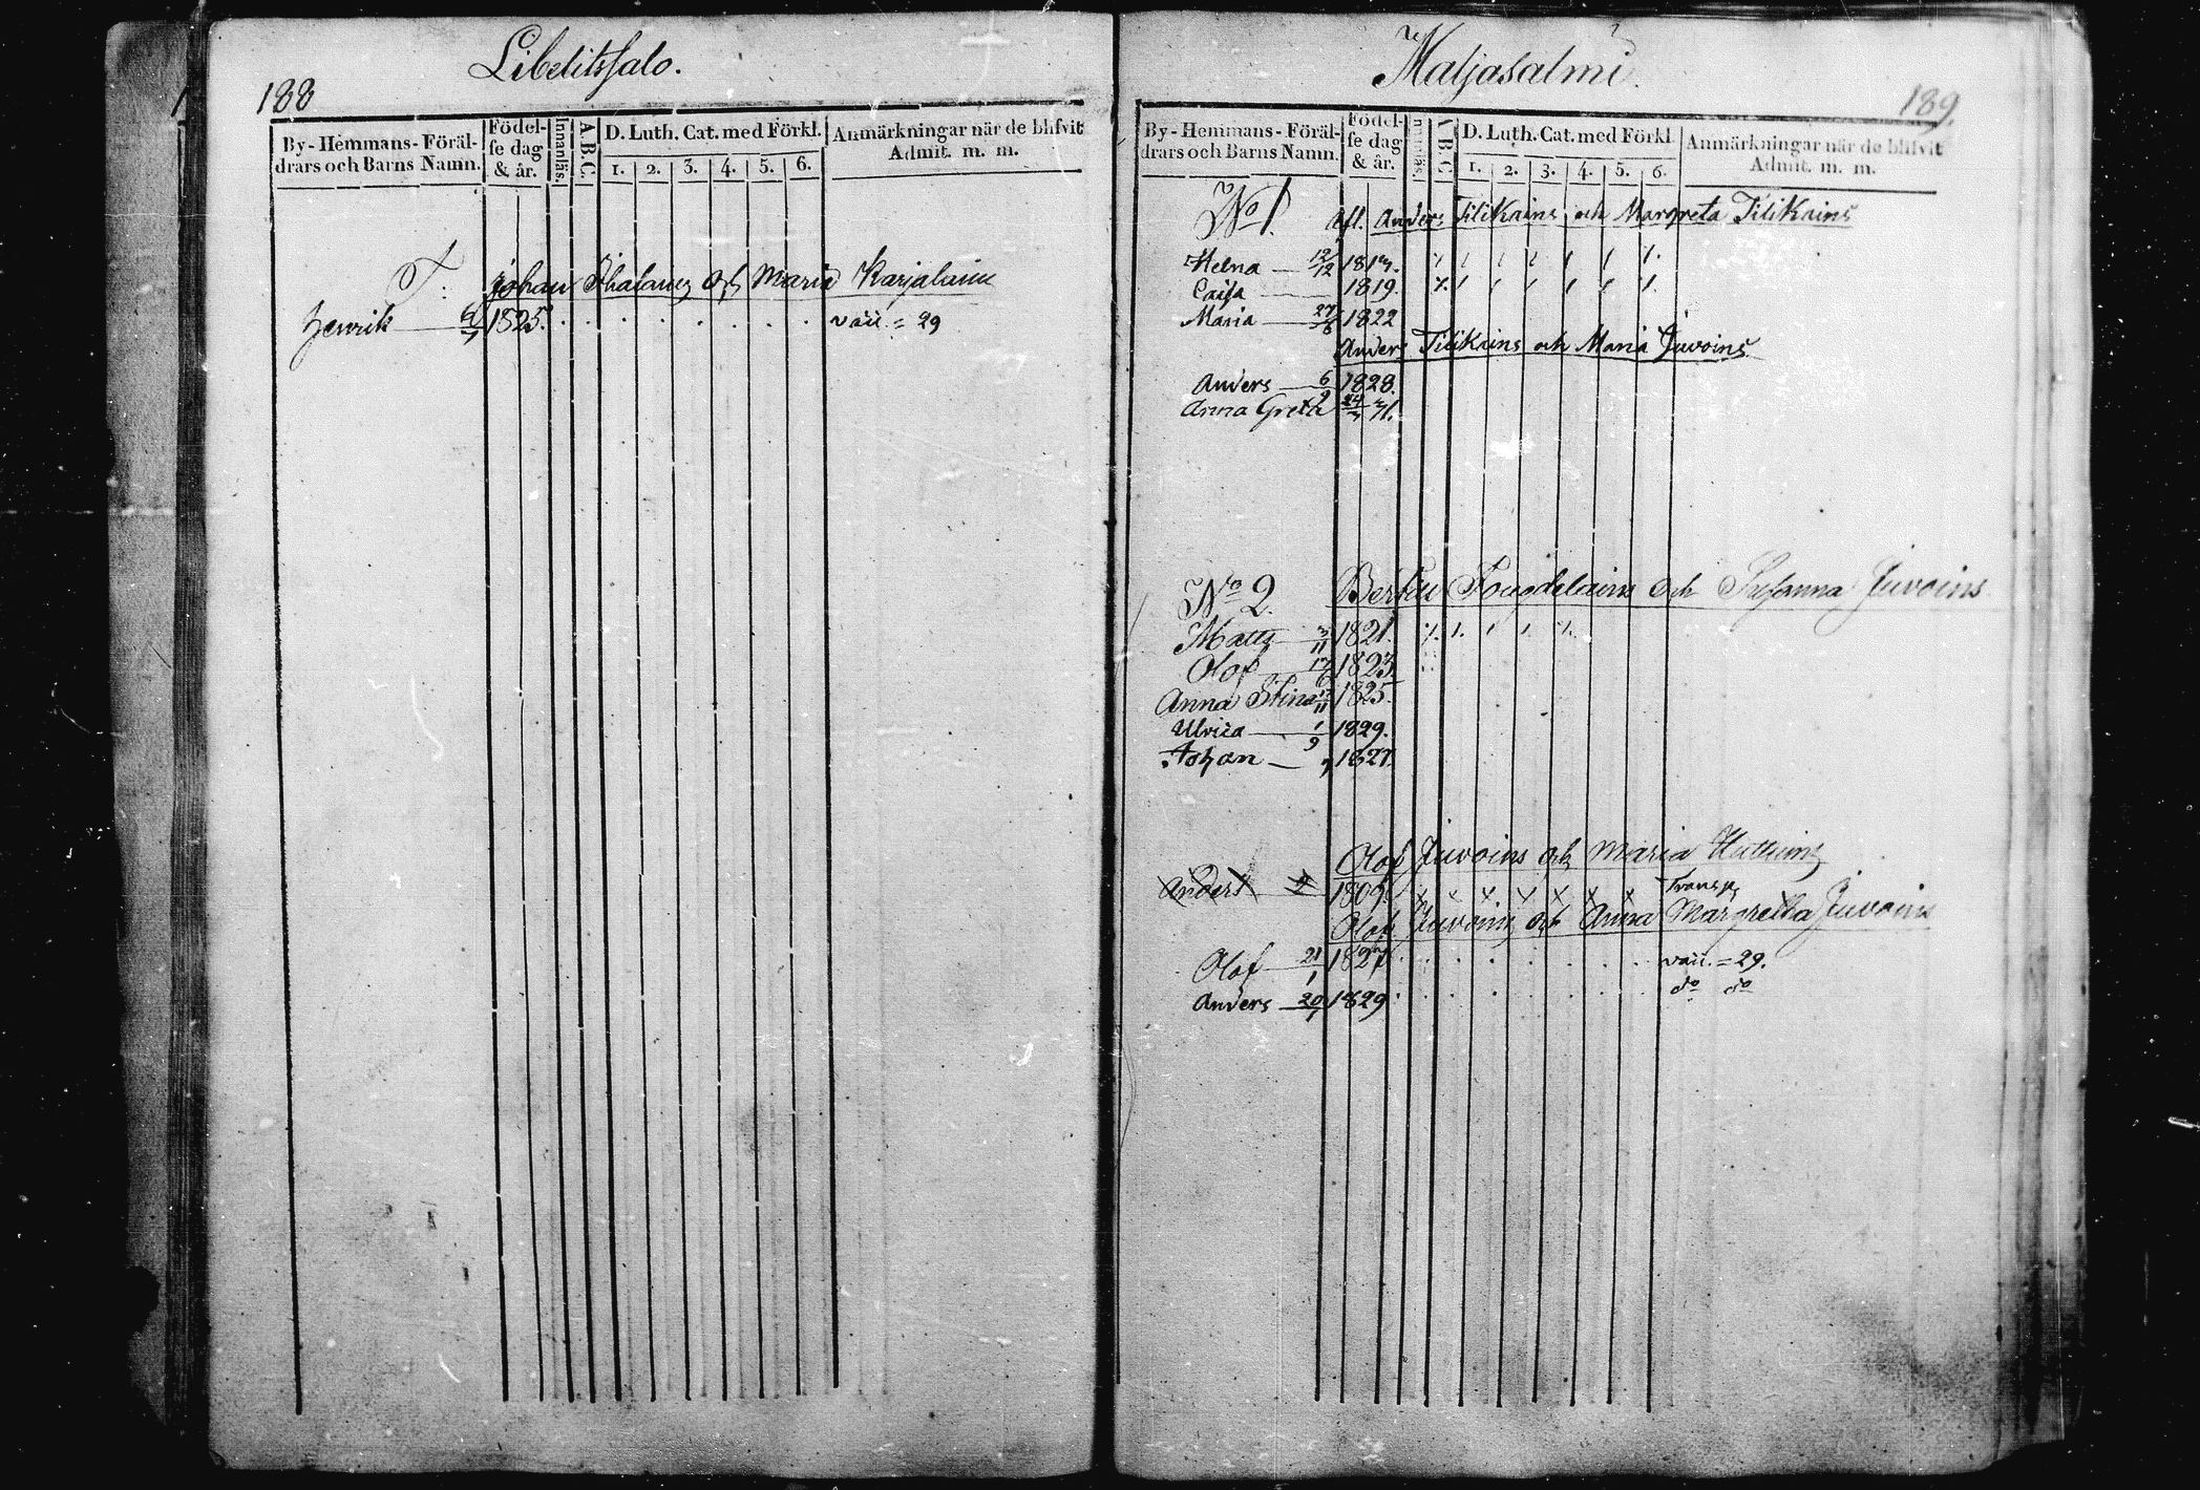 188
Libelitssalo.
By-Hemmans-Föräl-
drars och Barns Namn.
Födel-
se dag
& år.
Innanläs.
A.B.C.
D. Luth. Cat. med Förkl.
1. 2. 3. 4. 5. 6.
Anmärkningar när de blifvit
Admit. m. m.
T. Johan Ihalainen och Maria Karjalain
Henrik 1825. vacc. = 29
Maljasalmi.
189.
By-Hemmans-Föräl-
drars och Barns Namn.
Födel-
se dag
& år.
A.B.C.
D. Luth. Cat. med Förkl.
1. 2. 3. 4. 5. 6.
Anmärkningar när de blifvit
Admit. m. m.
No 1. afl. Anders Tilikains och Margreta Tilikains
Helna 12/12 1817.
Caisa 1819.
Maria 27/8 1822
Anders Tilikains och Maria Juvoins
Anders 6/9 1828.
Anna Greta 24/7 31.
No 2. Juvoins
Matts 3/11 1821.
Olof 1823.
Anna Stina 1825.
Ulrica 1/9 1829.
Johan 1827.
Olof Juvoins och Maria
Anders 1809. Transp.
Olof Juvoins och Anna Margretha Juvoins
Olof 21/1 1827 vacc. = 29.
Anders 20/1 1829 do do